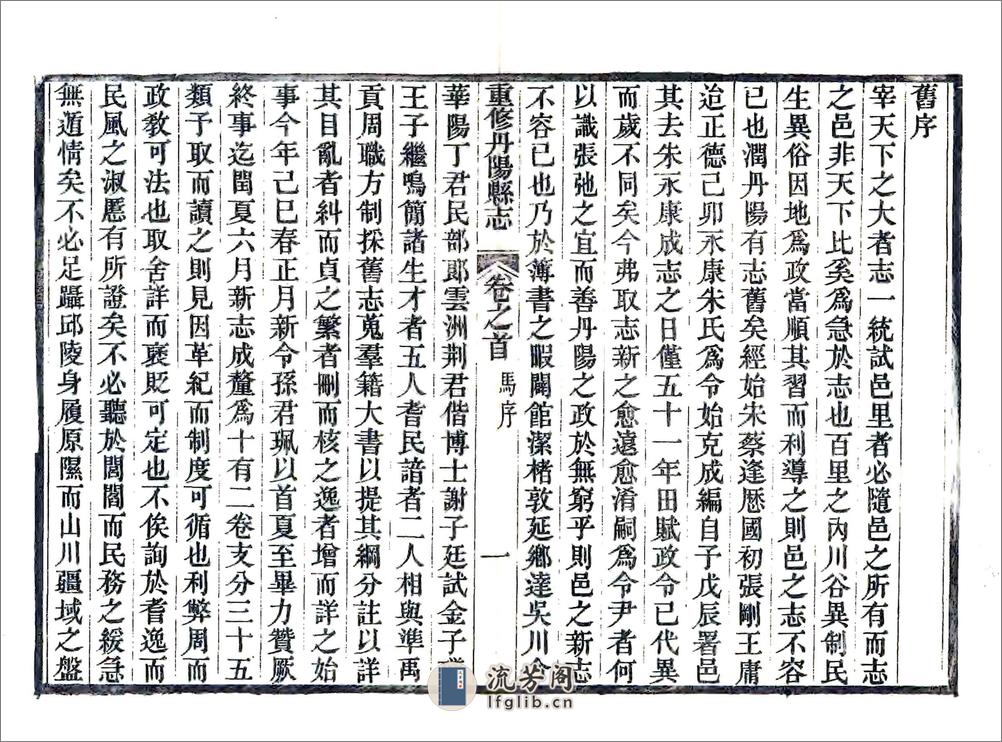 舊序
宰天下之大者志一統試邑里者必隨邑之所有而志
之邑非天下比奚為急於志也百里之內川谷異制民
生異俗因地為政當順其習而利導之則邑之志不容
已也潤丹陽有志舊矣經始朱蔡逢曆國初張剛王庸
迨正德己卯永康朱氏為令始克成編自予戊辰署邑
其去朱永康成志之日僅五十一年田賦政令已代異
而歲不同矣今弗取志新之愈遠愈淆嗣為令尹者何
以識張弛之宜而善丹陽之政於無窮乎則邑之新志
不容已也乃於簿書之暇闢館潔楮敦延鄉達吳川令
重修丹陽縣志 卷之首 馬序 一
華陽丁君民部郎雲洲荆君偕博士謝子廷試金子
王子繼鳴簡諸生才者五人耆民諳者二人相與準禹
貢周職方制採舊志蒐羣籍大書以提其綱分註以詳
其目亂者糾而貞之繁者刪而核之逸者增而詳之始
事今年己巳春正月新令孫君珮以首夏至畢力贊厥
終事迄閏夏六月新志成釐為十有二卷支分三十五
類予取而讀之則見因革紀而制度可循也利弊周而
政敎可法也取舍詳而褒貶可定也不俟詢於耆逸而
民風之淑慝有所證矣不必聽於閭閻而民務之緩急
無遁情矣不必足躡邱陵身履原隰而山川疆域之盤
流芳阁
lfglib.cn